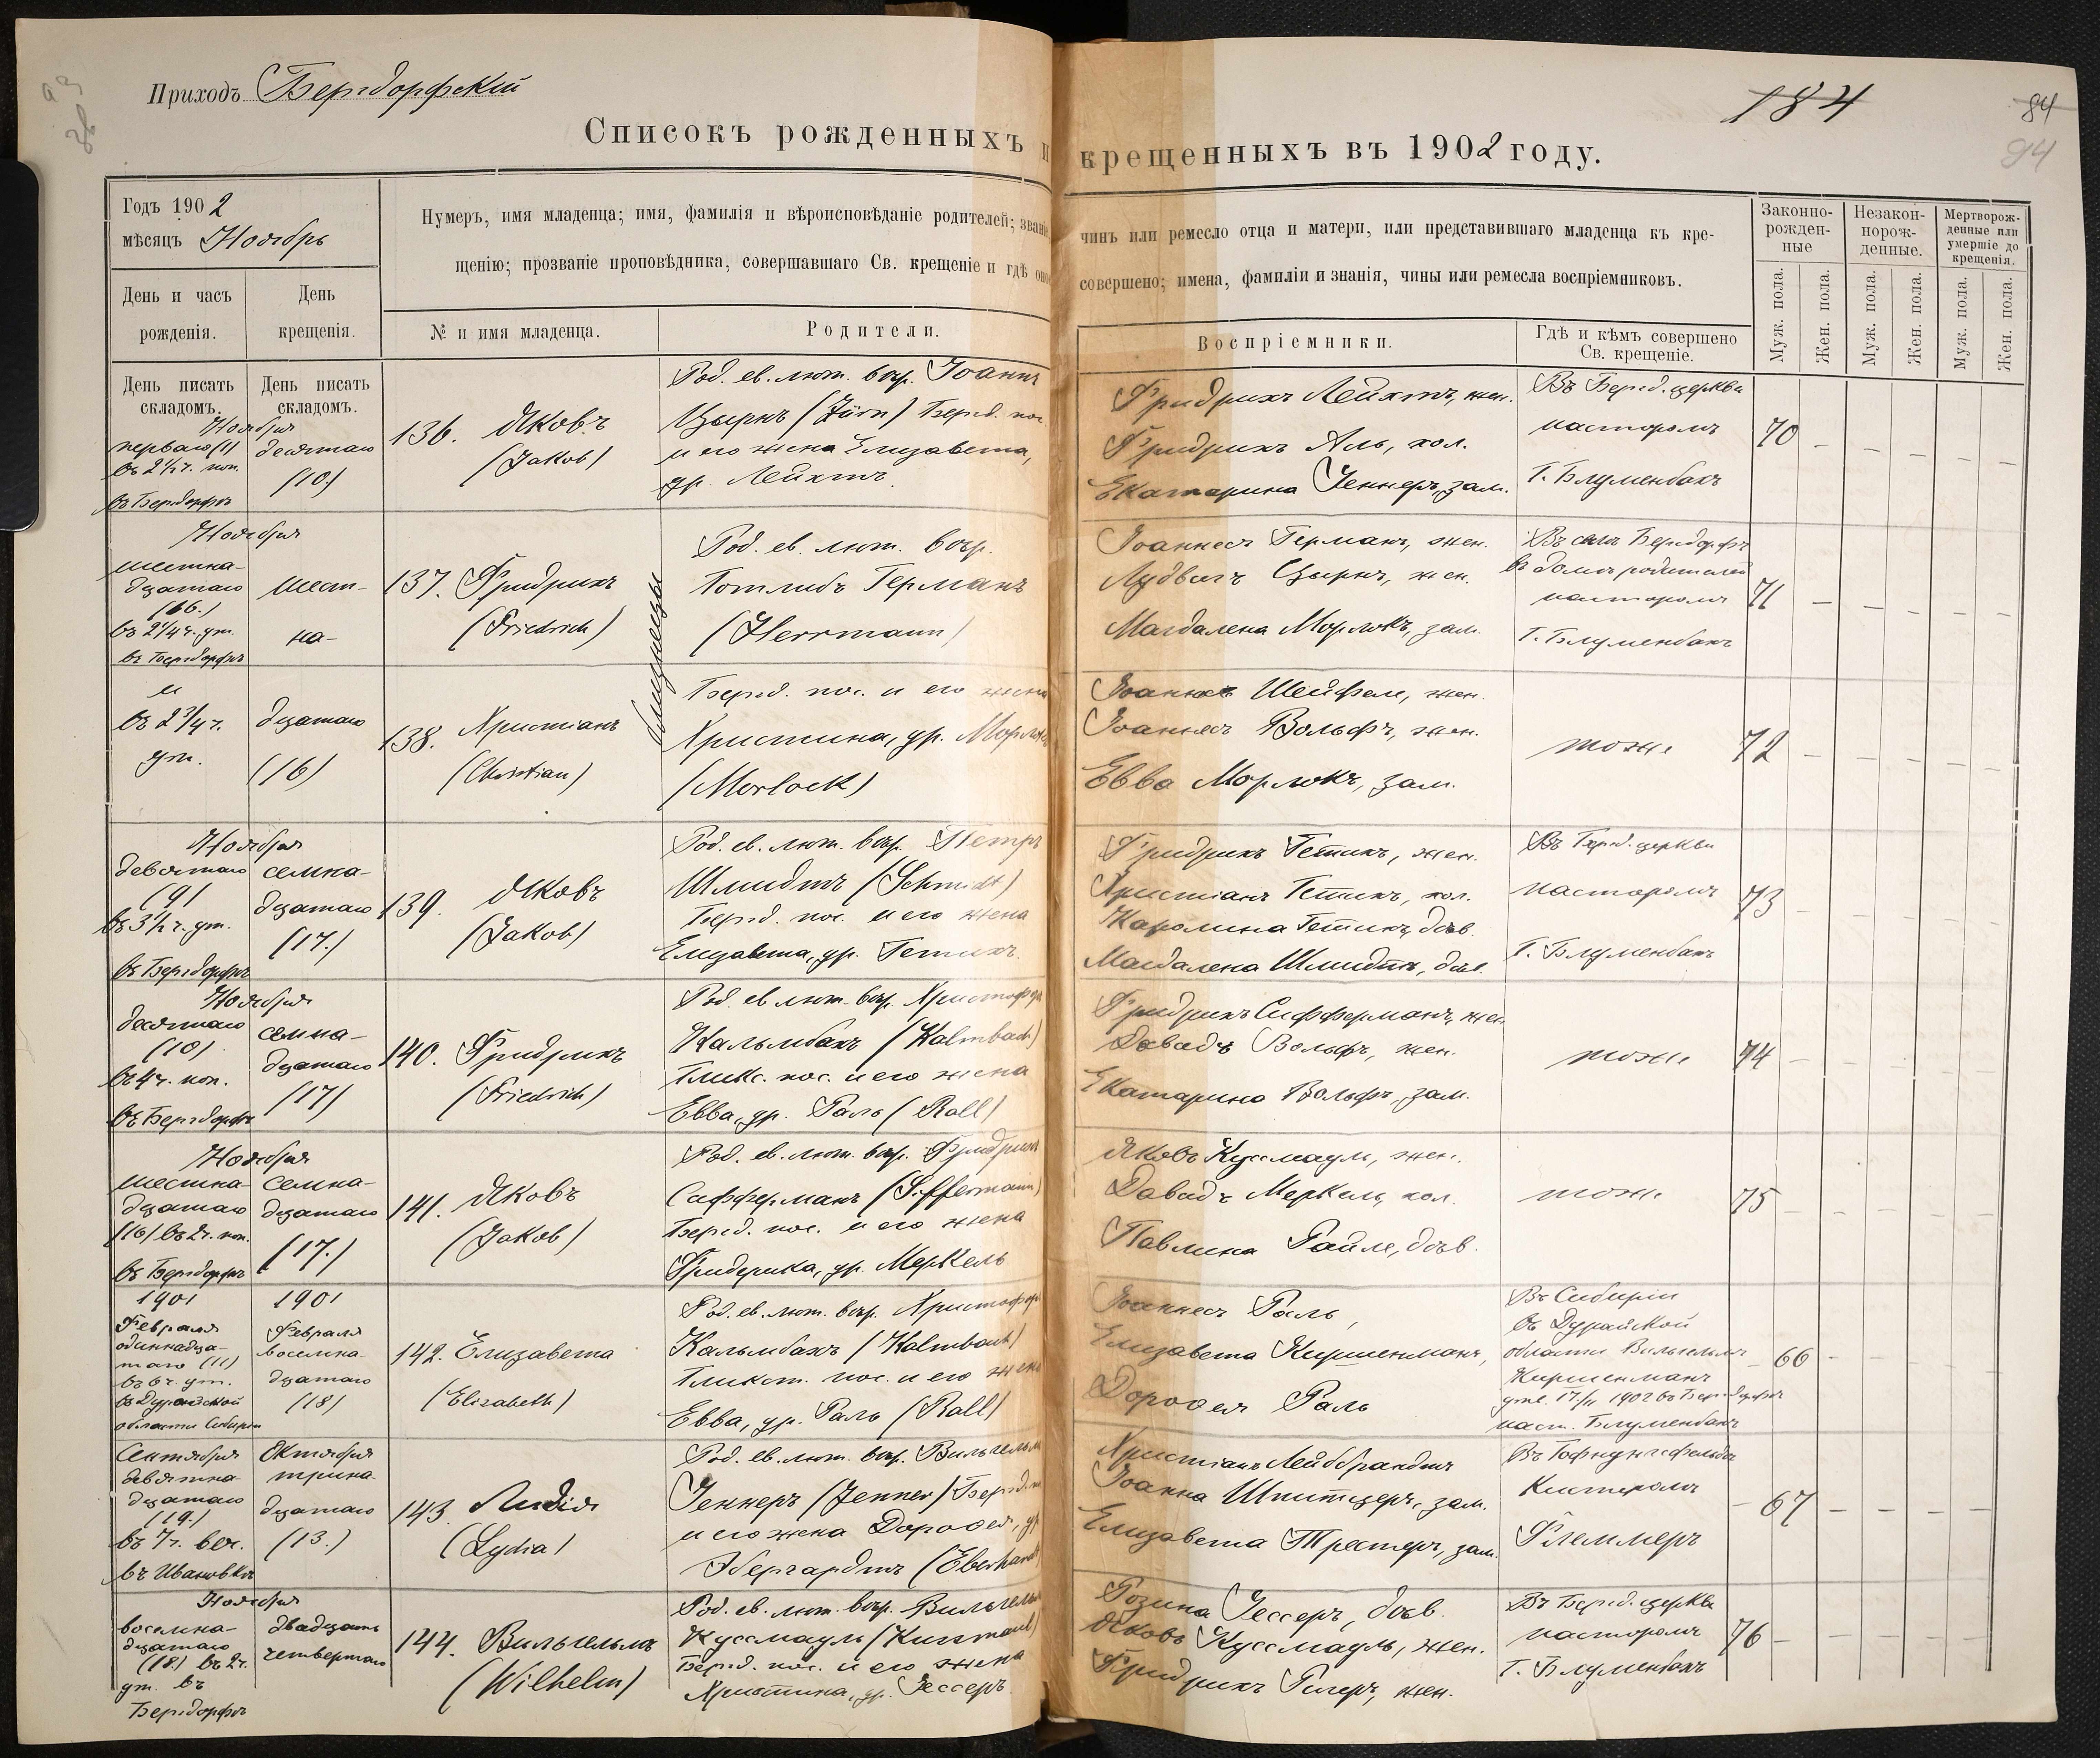 Приходъ Бергдорфскій
184
84
94
Списокъ рожденныхъ и крещенныхъ въ 1902 году.
Годъ 1902
мѣсяцъ Ноябрь
Нумеръ, имя младенца; имя, фамилія и вѣроисповѣданіе родителей; званіе,
чинъ или ремесло отца и матери, или представившаго младенца къ кре-
щенію; прозваніе проповѣдника, совершавшаго Св. крещеніе и гдѣ оно
совершено; имена, фамиліи и знанія, чины или ремесла воспріемниковъ.
Законно-
рожден-
ные
Незакон-
норож-
денные.
Мертворож-
денные или
умершіе до
крещенія.
День и часъ
рожденія.
День
крещенія.
№ и имя младенца.
Родители.
Воспріемники.
Гдѣ и кѣмъ совершено
Св. крещеніе.
Муж. пола.
Жен. пола.
Муж. пола.
Жен. пола.
Муж. пола.
Жен. пола.
День писать
складомъ.
День писать
складомъ.
Ноября
перваго (1)
въ 2 1/2 ч. поп.
въ Бергдорфѣ
десятаго
(10)
136. Яковъ
(Jakob)
Род. ев. лют. вѣр. Іоаннъ
Цырнъ (Zürn) Бергд. пос.
и его жена Елизавета,
ур. Лейхтъ.
Фридрихъ Лейхтъ, жен.
Фридрихъ Аль, хол.
Екатарина Іеннеръ, зам.
Въ Бергд. церкви
пасторомъ
Г. Блуменбахъ
70
Ноября
шестна-
дцатаго
(16.)
въ 2 1/4 ч. ут.
въ Бергдорфѣ
шест-
на-
137. Фридрихъ
(Friedrich)
близнецы
Род. ев. лют. вѣр.
Готлибъ Германъ
(Herrmann)
Іоаннесъ Германъ, жен.
Лудвигъ Цырнъ, жен.
Магдалена Морлокъ, зам.
Въ селѣ Бергдорфѣ
въ домѣ родителей
пасторомъ
Г. Блуменбахъ
71
и
въ 2 3/4 ч.
ут.
дцатаго
(16)
138. Христіанъ
(Christian)
Бергд. пос. и его жена
Христина, ур. Морлокъ
(Morlock)
Іоаннесъ Шейфеле, жен.
Іоаннесъ Вольфъ, жен.
Евва Морлокъ, зам.
тоже
72
Ноября
девятаго
(9)
въ 3 1/2 ч. ут.
въ Бергдорфѣ
семна-
дцатаго
(17.)
139. Яковъ
(Jakob)
Род. ев. лют. вѣр. Петръ
Шмидтъ (Schmidt)
Бергд. пос. и его жена
Елизавета, ур. Гетикъ.
Фридрихъ Гетикъ, жен.
Христіанъ Гетикъ, хол.
Каролина Гетикъ, дѣв.
Магдалена Шмидтъ, дѣв.
Въ Бергд. церкви
пасторомъ
Г. Блуменбахъ
73
Ноября
десятаго
(10)
въ 4 ч. поп.
въ Бергдорфѣ
семна-
дцатаго
(17)
140. Фридрихъ
(Friedrich)
Род. ев. лют. вѣр. Христофоръ
Кальмбахъ (Kalmbach)
Гликс. пос. и его жена
Евва, ур. Раль (Rall)
Фридрихъ Сифферманъ, жен.
Давидъ Вольфъ, жен.
Екатарина Вольфъ, зам.
тоже
74
Ноября
шестна-
дцатаго
(16) въ 2 ч. поп.
въ Бергдорфѣ
семна-
дцатаго
(17.)
141. Яковъ
(Jakob)
Род. ев. лют. вѣр. Фридрихъ
Сифферманъ (Siffermann)
Бергд. пос. и его жена
Фридерика, ур. Меркель
Яковъ Куссмауль, жен.
Давидъ Меркель, хол.
Павлина Райле, дѣв.
тоже
75
1901
Февраля
одиннадца-
таго (11)
въ 6 ч. ут.
въ Дурайской
области Сибири
1901
Февраля
восемна-
дцатаго
(18)
142. Елизавета
(Elisabeth)
Род. ев. лют. вѣр. Христофоръ
Кальмбахъ (Kalmbach)
Гликст. пос. и его жена
Евва, ур. Раль (Rall)
Іоаннесъ Раль,
Елизавета Киршенманъ,
Доротея Раль
Въ Сибири
въ Дурайской
области Вильгельмъ
Киршенманъ
утв. 17/11 1902 въ Бергдорфѣ
паст. Блуменбахъ
66
Сентября
девятна-
дцатаго
(19.)
въ 7 ч. веч.
въ Ивановкѣ
Октября
трина-
дцатаго
(13.)
143. Лидія
(Lydia)
Род. ев. лют. вѣр. Вильгельмъ
Іеннеръ (Jenner) Бергд. п.
и его жена Доротея, ур.
Эбергардтъ (Eberhardt)
Христіанъ Лейббрандтъ
Іоанна Шпитцеръ, зам.
Елизавета Трестеръ, зам.
Въ Гофнунгсфельдѣ
Кистеромъ
Флеммеръ
67
Ноября
восемна-
дцатаго
(18.) въ 2 ч.
ут. въ
Бергдорфѣ
двадцать
четвертаго
144. Вильгельмъ
(Wilhelm)
Род. ев. лют. вѣр. Вильгельмъ
Куссмауль (Kussmaul)
Бергд. пос. и его жена
Христина, ур. Іессеръ.
Розина Іессеръ, дѣв.
Яковъ Куссмауль, жен.
Фридрихъ Гигеръ, жен.
Въ Бергд. церкви
пасторомъ
Г. Блуменбахъ
76